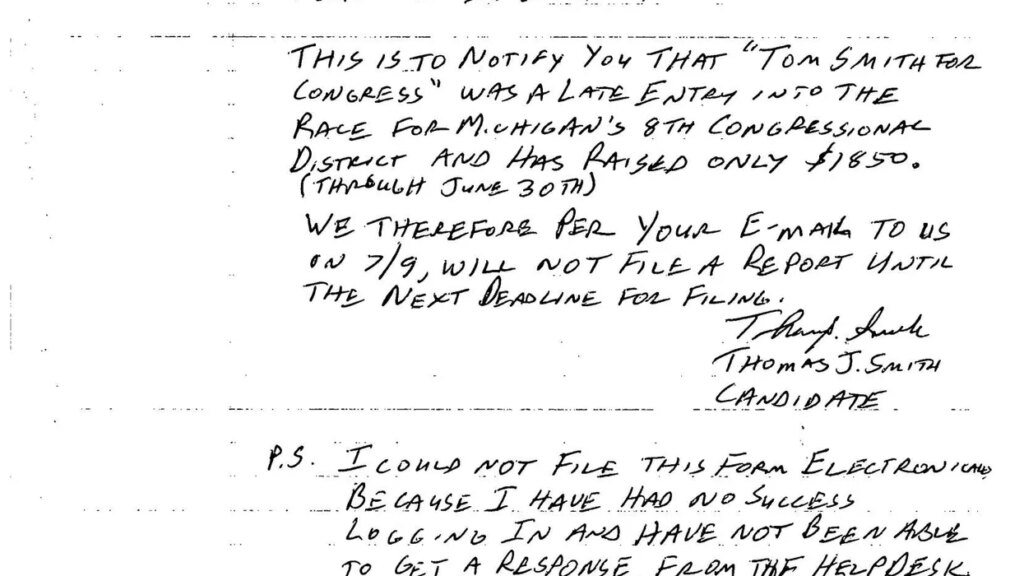 THIS IS TO NOTIFY YOU THAT "TOM SMITH FOR
CONGRESS" WAS A LATE ENTRY INTO THE
RACE FOR MICHIGAN'S 8TH CONGRESSIONAL
DISTRICT AND HAS RAISED ONLY $1850.
(THROUGH JUNE 30TH)
WE THEREFORE PER YOUR E-MAIL TO US
ON 7/9, WILL NOT FILE A REPORT UNTIL
THE NEXT DEADLINE FOR FILING.
THOMAS J. SMITH
CANDIDATE
P.S. I COULD NOT FILE THIS FORM ELECTRONICALLY
BECAUSE I HAVE HAD NO SUCCESS
LOGGING IN AND HAVE NOT BEEN ABLE
TO GET A RESPONSE FROM THE HELPDESK.